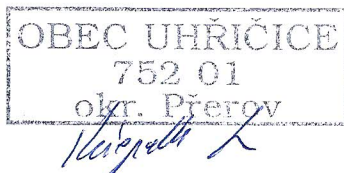 OBEC UHŘIČICE
752 01
okr. Přerov